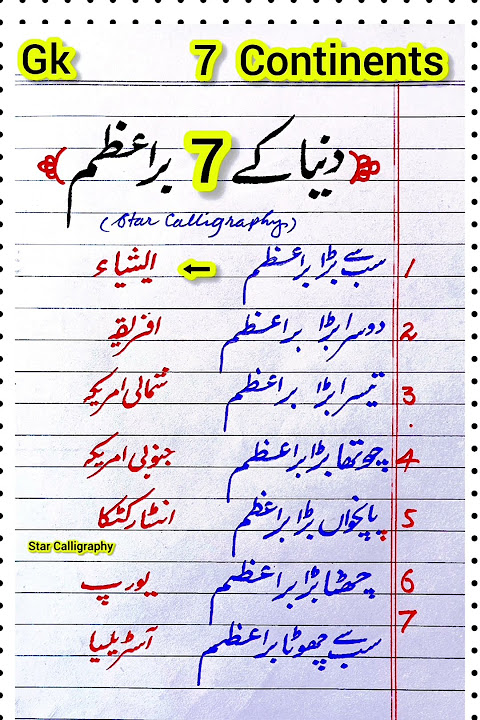 Gk 7 Continents
دنیا کے 7 براعظم
(Star Calligraphy)
1 سب سے بڑا براعظم ← ایشیاء
2 دوسرا بڑا براعظم افریقہ
3 تیسرا بڑا براعظم شمالی امریکہ
4 چوتھا بڑا براعظم جنوبی امریکہ
5 پانچواں بڑا براعظم انٹارکٹکا
Star Calligraphy
6 چھٹا بڑا براعظم یورپ
7 سب سے چھوٹا براعظم آسٹریلیا